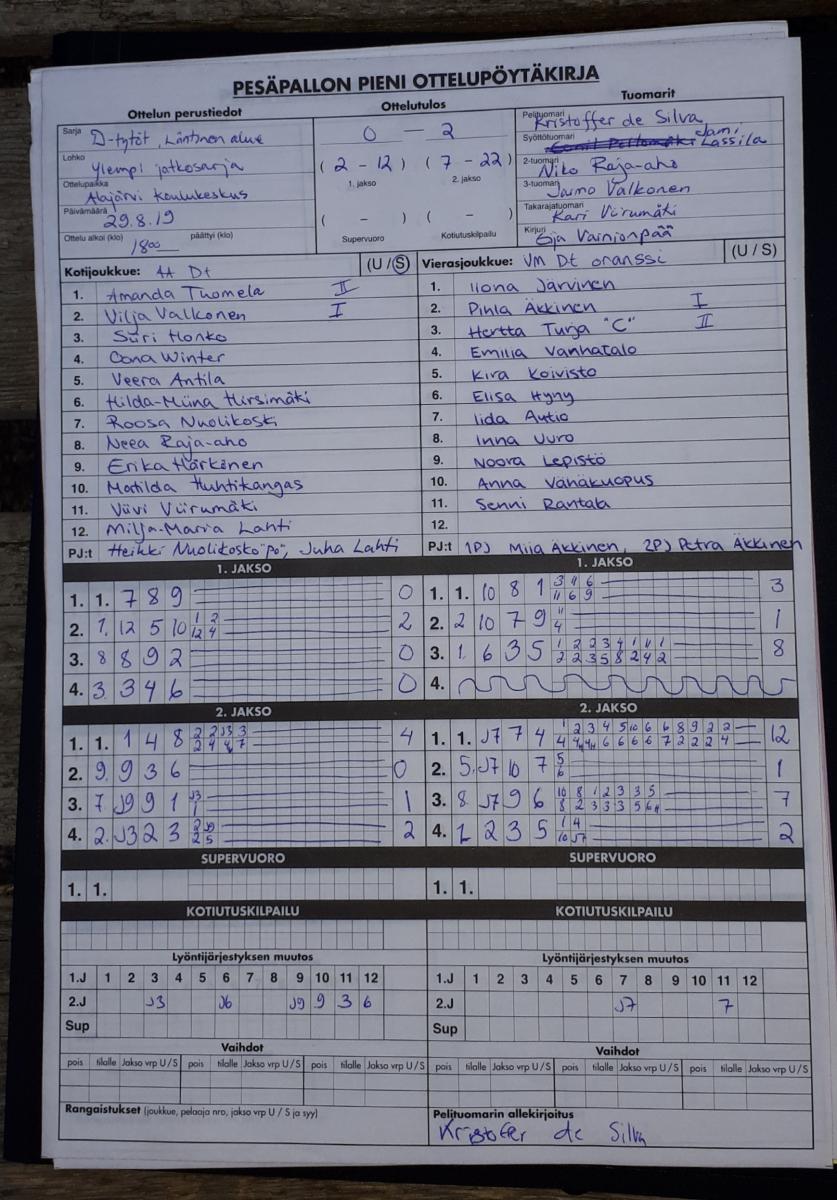 PESÄPALLON PIENI OTTELUPÖYTÄKIRJA
Ottelun perustiedot
Sarja D-tytöt, Läntinen alue
Lohko Ylempi jatkosarja
Ottelupaikka Alajärvi Koulukeskus
Päivämäärä 29.8.19
Ottelu alkoi (klo) 1800 päättyi (klo)
Ottelutulos
0 - 2
( 2 - 12 ) ( 7 - 22 )
1. jakso 2. jakso
( - ) ( - )
Supervuoro Kotiutuskilpailu
Tuomarit
Pelituomari Kristoffer de Silva
Syöttötuomari Jami Lassila
2-tuomari Niko Raja-aho
3-tuomari Jarmo Valkonen
Takarajatuomari Kari Viirumäki
Kirjuri Eija Vainionpää
Kotijoukkue: AA Dt (U / S)
1. Amanda Tuomela II
2. Vilja Valkonen I
3. Siiri Honko
4. Oona Winter
5. Veera Antila
6. Hilda-Miina Hirsimäki
7. Roosa Nuolikoski
8. Neea Raja-aho
9. Erika Härkönen
10. Matilda Huhtikangas
11. Viivi Viirumäki
12. Milja-Maria Lahti
PJ:t Heikki Nuolikosko "po", Juha Lahti
Vierasjoukkue: VM Dt oranssi (U / S)
1. Ilona Järvinen
2. Pihla Äkkinen I
3. Hertta Turja "C" II
4. Emilia Vanhatalo
5. Kira Koivisto
6. Elisa Hyny
7. Iida Autio
8. Inna Uuro
9. Noora Lepistö
10. Anna Vanäkuopus
11. Senni Rantala
12.
PJ:t 1PJ Miia Äkkinen, 2PJ Petra Äkkinen
1. JAKSO
1. 1. 7 8 9 0
2. 1. 12 5 10 1 2 2
12 4
3. 8 8 9 2 0
4. 3. 3 4 6 0
1. JAKSO
1. 1. 10 8 1 3 4 6 3
11 6 9
2. 2 10 7 9 11 1
4
3. 1. 6 3 5 1 2 2 3 4 1 11 1 8
2 2 3 5 8 2 4 2
4.
2. JAKSO
1. 1. 1 4 8 2 2 J3 3 4
2 4 4 7
2. 9. 9 3 6 0
3. 7 J9 9 1 J3 1
1
4. 2. J3 2 3 2 J9 2
2 5
2. JAKSO
1. 1. J7 7 4 1 2 3 4 5 10 6 6 8 9 2 2 12
2. 5. J7 10 7 5 1
6
3. 8. J7 9 6 10 8 1 2 3 3 5 7
8 2 3 3 3 5 6
4. 1. 2 3 5 1 4 2
10 J7
SUPERVUORO
1. 1.
SUPERVUORO
1. 1.
KOTIUTUSKILPAILU
KOTIUTUSKILPAILU
Lyöntijärjestyksen muutos
1.J 1 2 3 4 5 6 7 8 9 10 11 12
2.J J3 J6 J9 9 3 6
Sup
Lyöntijärjestyksen muutos
1.J 1 2 3 4 5 6 7 8 9 10 11 12
2.J J7 7
Sup
Vaihdot
pois tilalle Jakso vrp U / S pois tilalle Jakso vrp U / S pois tilalle Jakso vrp U / S
Vaihdot
pois tilalle Jakso vrp U / S pois tilalle Jakso vrp U / S pois tilalle Jakso vrp U / S
Rangaistukset (joukkue, pelaaja nro, jakso vrp U / S ja syy)
Pelituomarin allekirjoitus
Kristoffer de Silva